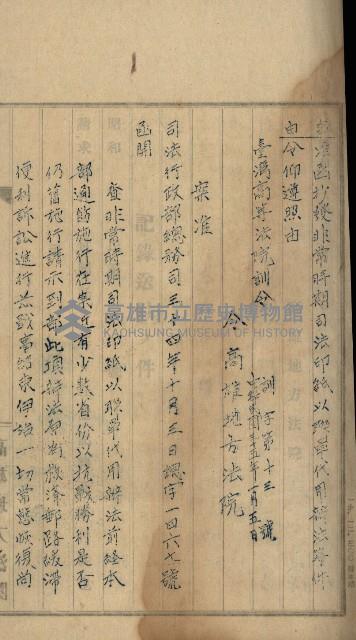 准函抄發非常時期司法印紙以聯單代用辦法等件
由令仰遵照由
臺灣高等法院訓令
訓字第十三號
中華民國三十五年一月五日
令高雄地方法院
案准
司法行政部總務司三十四年十月三日總字一四六七號
函開
查非常時期司法印紙以聯單代用辦法前經本
部通飭施行在案近有少數省份以抗戰勝利是否
仍舊施行請示到部此項辦法原為救濟郵路破滯
便利訴訟進行茲戰事結束伊始一切常態恢復尚
高雄市立歷史博物館
KAOHSIUNG MUSEUM OF HISTORY